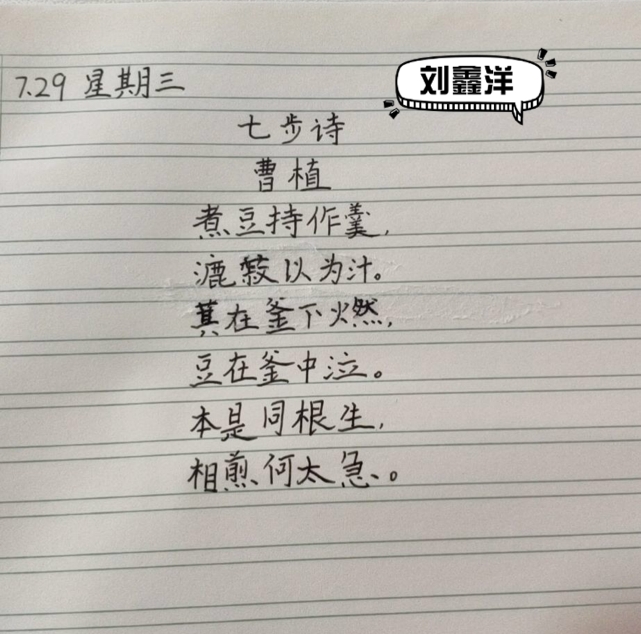 7.29 星期三
刘鑫洋
七步诗
曹植
煮豆持作羹,
漉菽以为汁。
萁在釜下燃,
豆在釜中泣。
本是同根生,
相煎何太急。